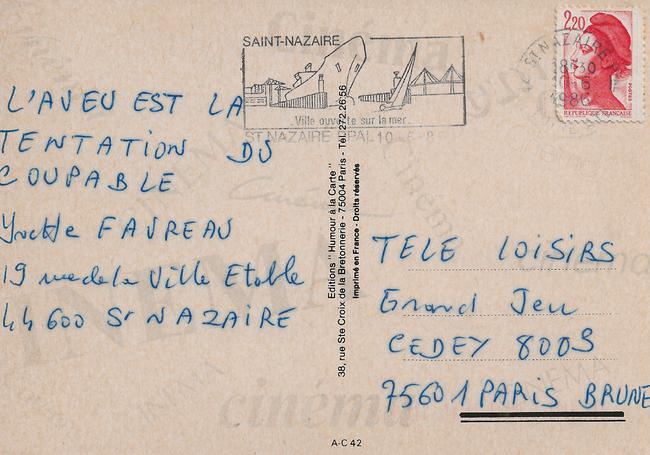 SAINT-NAZAIRE
Ville ouverte sur la mer
ST NAZAIRE PPAL 10-6-8
2,20
REPUBLIQUE FRANÇAISE
ST NAZAIRE
18H30
1986
L'AVEU EST LA
TENTATION DU
COUPABLE
Yvette FAVREAU
19 rue de la Ville Etable
44600 St NAZAIRE
Editions "Humour à la Carte"
38, rue Ste Croix de la Bretonnerie - 75004 Paris - Tél. 272.26.56
Imprimé en France - Droits réservés
TELE LOISIRS
Grand Jeu
CEDEY 8009
75601 PARIS BRUNE
A-C 42
cinéma
CINEMA